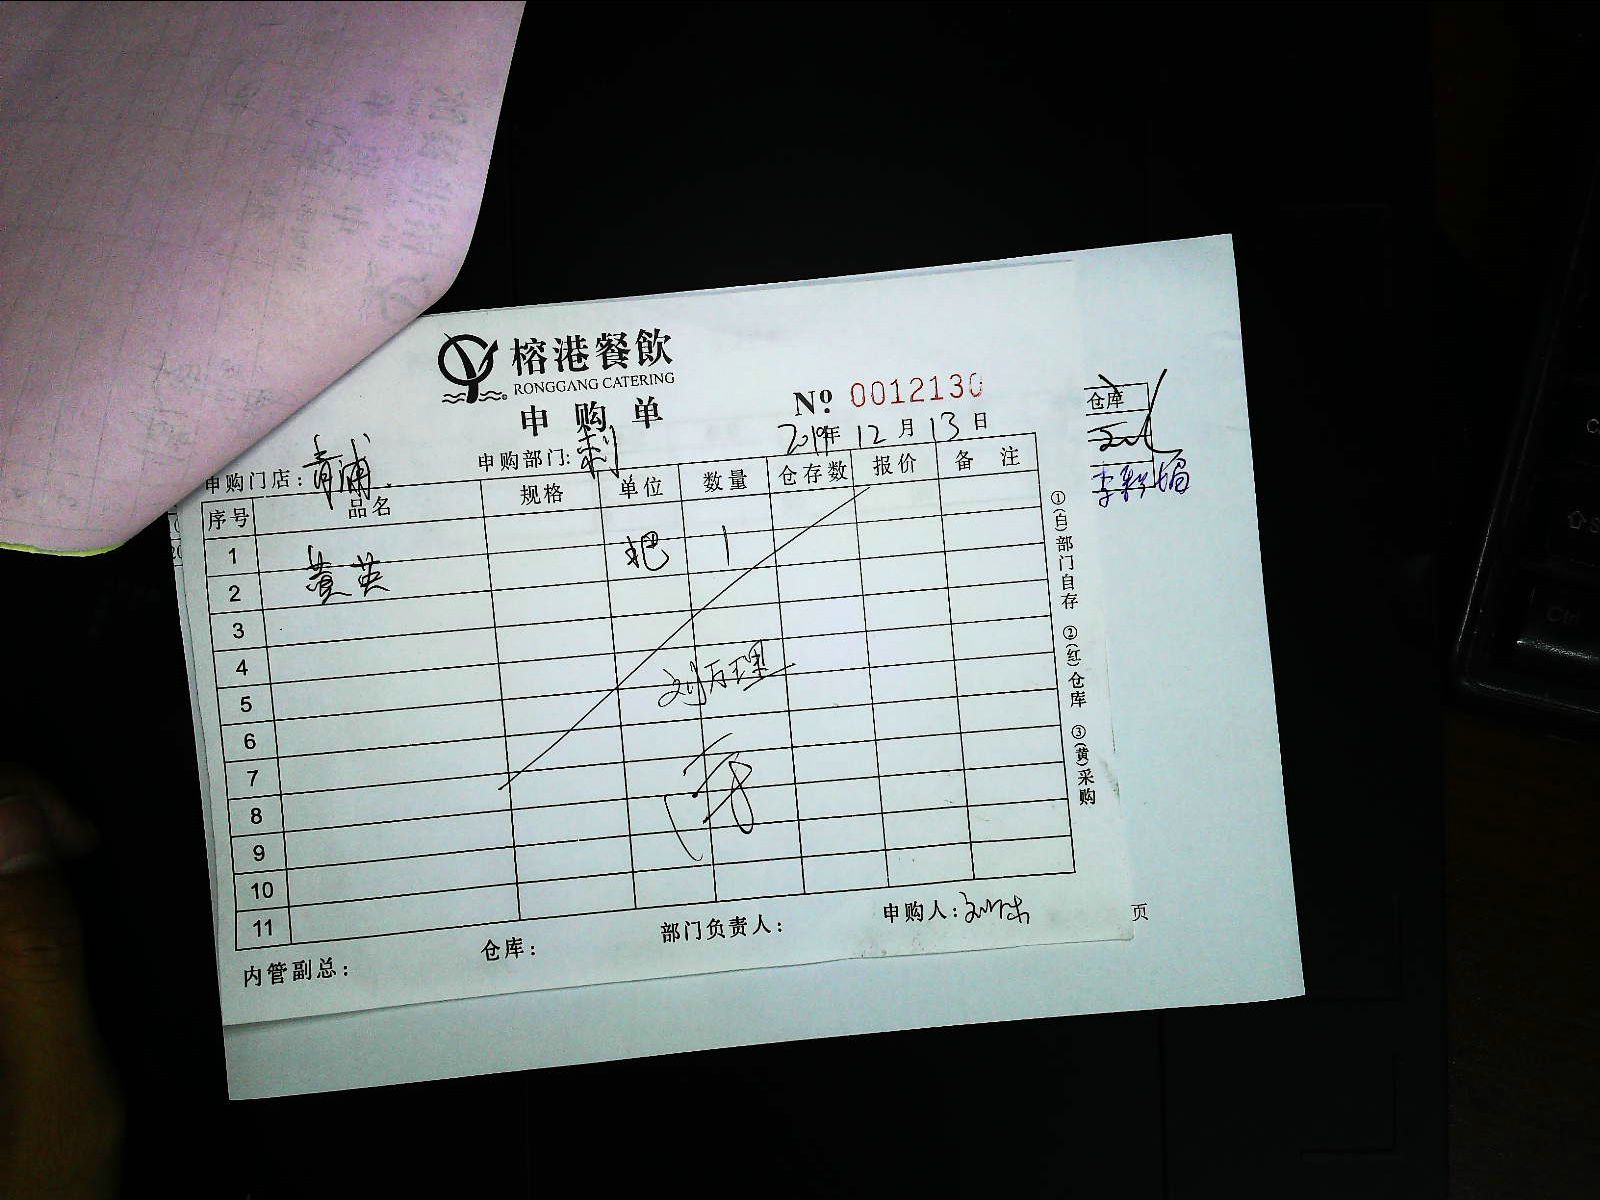 榕港餐飲
RONGGANG CATERING
申购单
№ 0012130
申购门店：青浦 申购部门：刺 2019年12月13日
序号 品名 规格 单位 数量 仓存数 报价 备注
1 黄英 把 1
2
3
4
5
6
7
8
9
10
11
刘万理
内管副总： 仓库： 部门负责人： 申购人：
①(白)部门自存 ②(红)仓库 ③(黄)采购
仓库
页
Ctrl